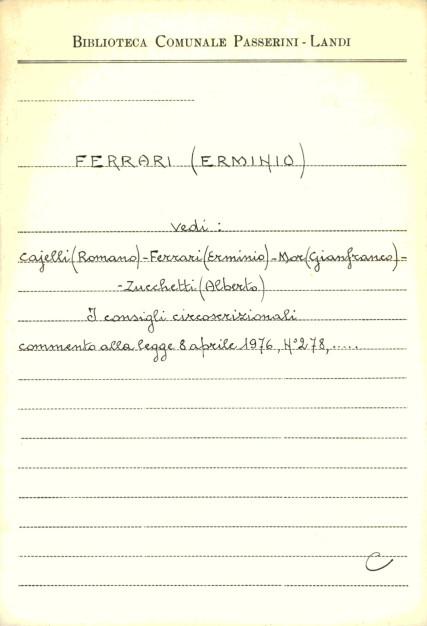 BIBLIOTECA COMUNALE PASSERINI - LANDI
FERRARI (ERMINIO)
vedi :
Cajelli (Romano) - Ferrari (Erminio) - Mor (Gianfranco) -
- Zucchetti (Alberto)
I consigli circoscrizionali
commento alla legge 8 aprile 1976, N° 278, .....
C